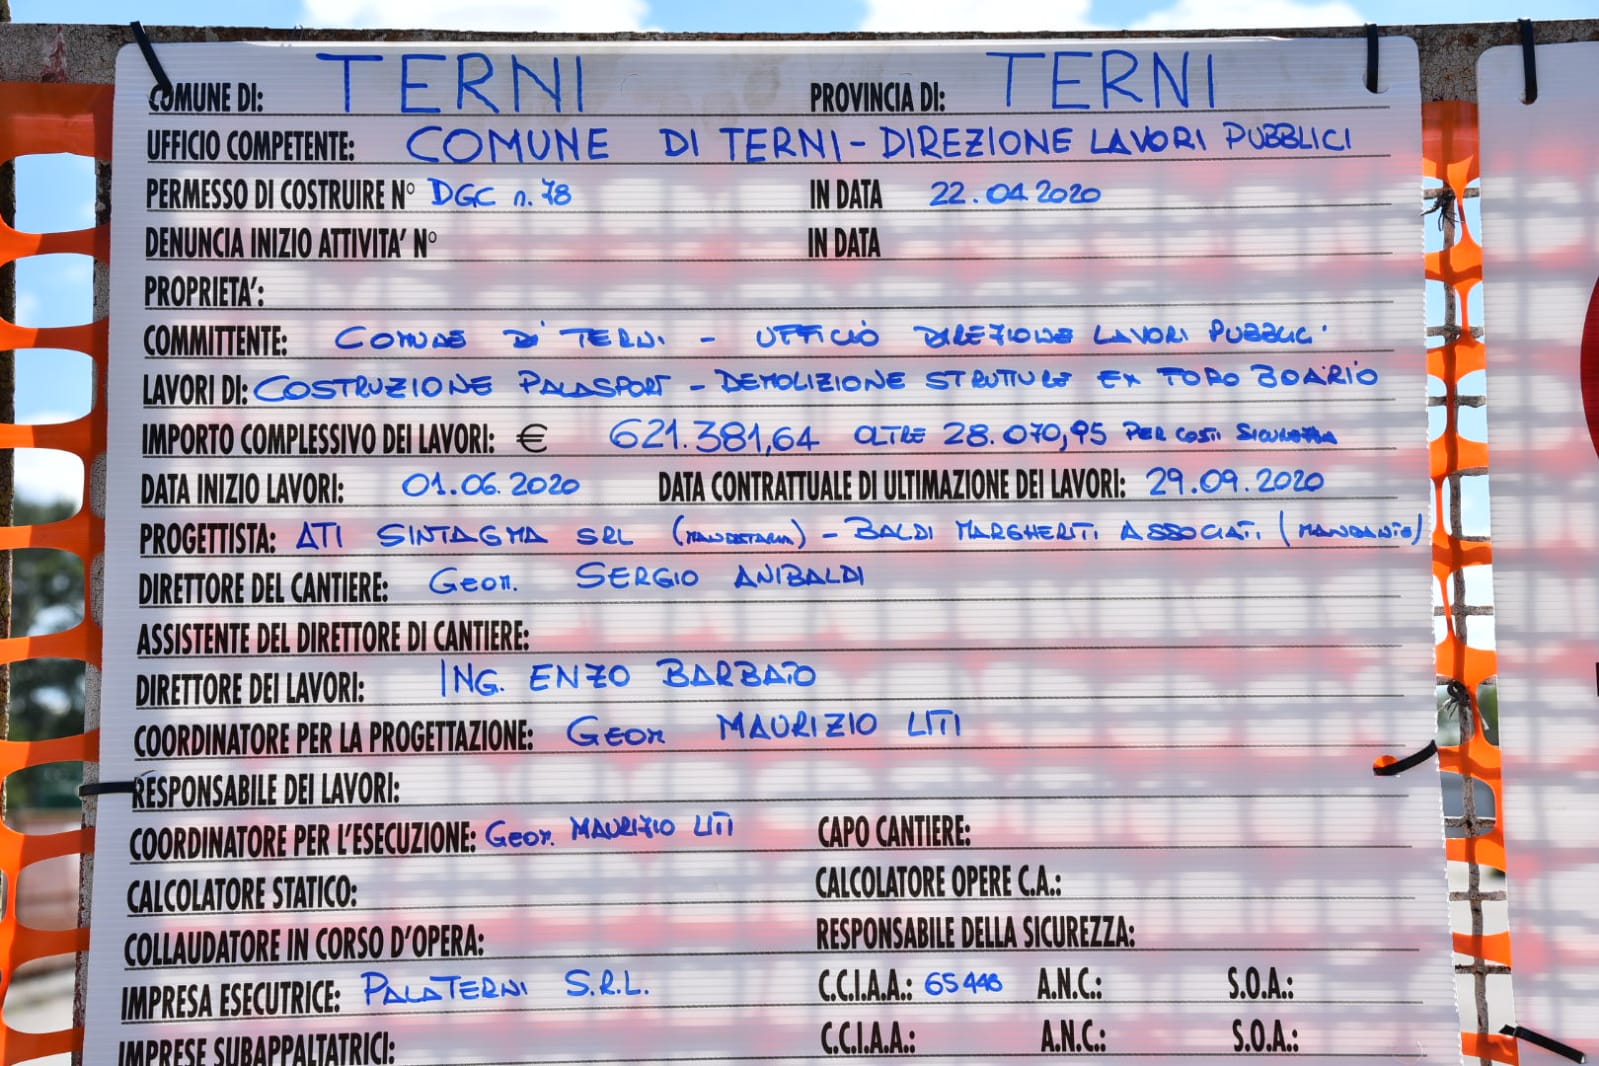 COMUNE DI: TERNI PROVINCIA DI: TERNI
UFFICIO COMPETENTE: COMUNE DI TERNI - DIREZIONE LAVORI PUBBLICI
PERMESSO DI COSTRUIRE N° DGC n. 78 IN DATA 22.04.2020
DENUNCIA INIZIO ATTIVITA' N° IN DATA
PROPRIETA':
COMMITTENTE: COMUNE DI TERNI - UFFICIO DIREZIONE LAVORI PUBBLICI
LAVORI DI: COSTRUZIONE PALASPORT - DEMOLIZIONE STRUTTURE EX FORO BOARIO
IMPORTO COMPLESSIVO DEI LAVORI: € 621.381,64 OLTRE 28.070,95 PER COSTI SICUREZZA
DATA INIZIO LAVORI: 01.06.2020 DATA CONTRATTUALE DI ULTIMAZIONE DEI LAVORI: 29.09.2020
PROGETTISTA: ATI SINTAGMA SRL (MANDATARIA) - BALDI MARGHERITI ASSOCIATI (MANDANTE)
DIRETTORE DEL CANTIERE: Geom. SERGIO ANIBALDI
ASSISTENTE DEL DIRETTORE DI CANTIERE:
DIRETTORE DEI LAVORI: ING. ENZO
COORDINATORE PER LA PROGETTAZIONE: Geom MAURIZIO LITI
RESPONSABILE DEI LAVORI:
COORDINATORE PER L'ESECUZIONE: Geom. MAURIZIO LITI CAPO CANTIERE:
CALCOLATORE STATICO: CALCOLATORE OPERE C.A.:
COLLAUDATORE IN CORSO D'OPERA: RESPONSABILE DELLA SICUREZZA:
IMPRESA ESECUTRICE: PALATERNI S.R.L. C.C.I.A.A.: 65448 A.N.C.: S.O.A.:
IMPRESE SUBAPPALTATRICI: C.C.I.A.A.: A.N.C.: S.O.A.: